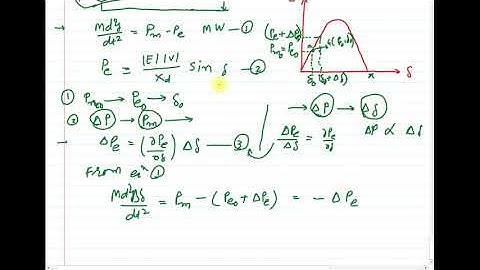 → Md²δ/dt² = Pm - Pe MW - ①
Pe = |E||V|/Xd sin δ - ②
(Pe+ΔPe)
Pm0 = Pe0
δ0 (δ0+Δδ) π δ
① Pm0 → Pe0 → δ0
② ΔP → Pm → → ΔP → Δδ
- ΔPe = (∂Pe/∂δ) Δδ - ③ ΔPe/Δδ = ∂Pe/∂δ ΔP ∝ Δδ
From eqn ①
Md²Δδ/dt² = Pm - (Pe0 + ΔPe) = - ΔPe